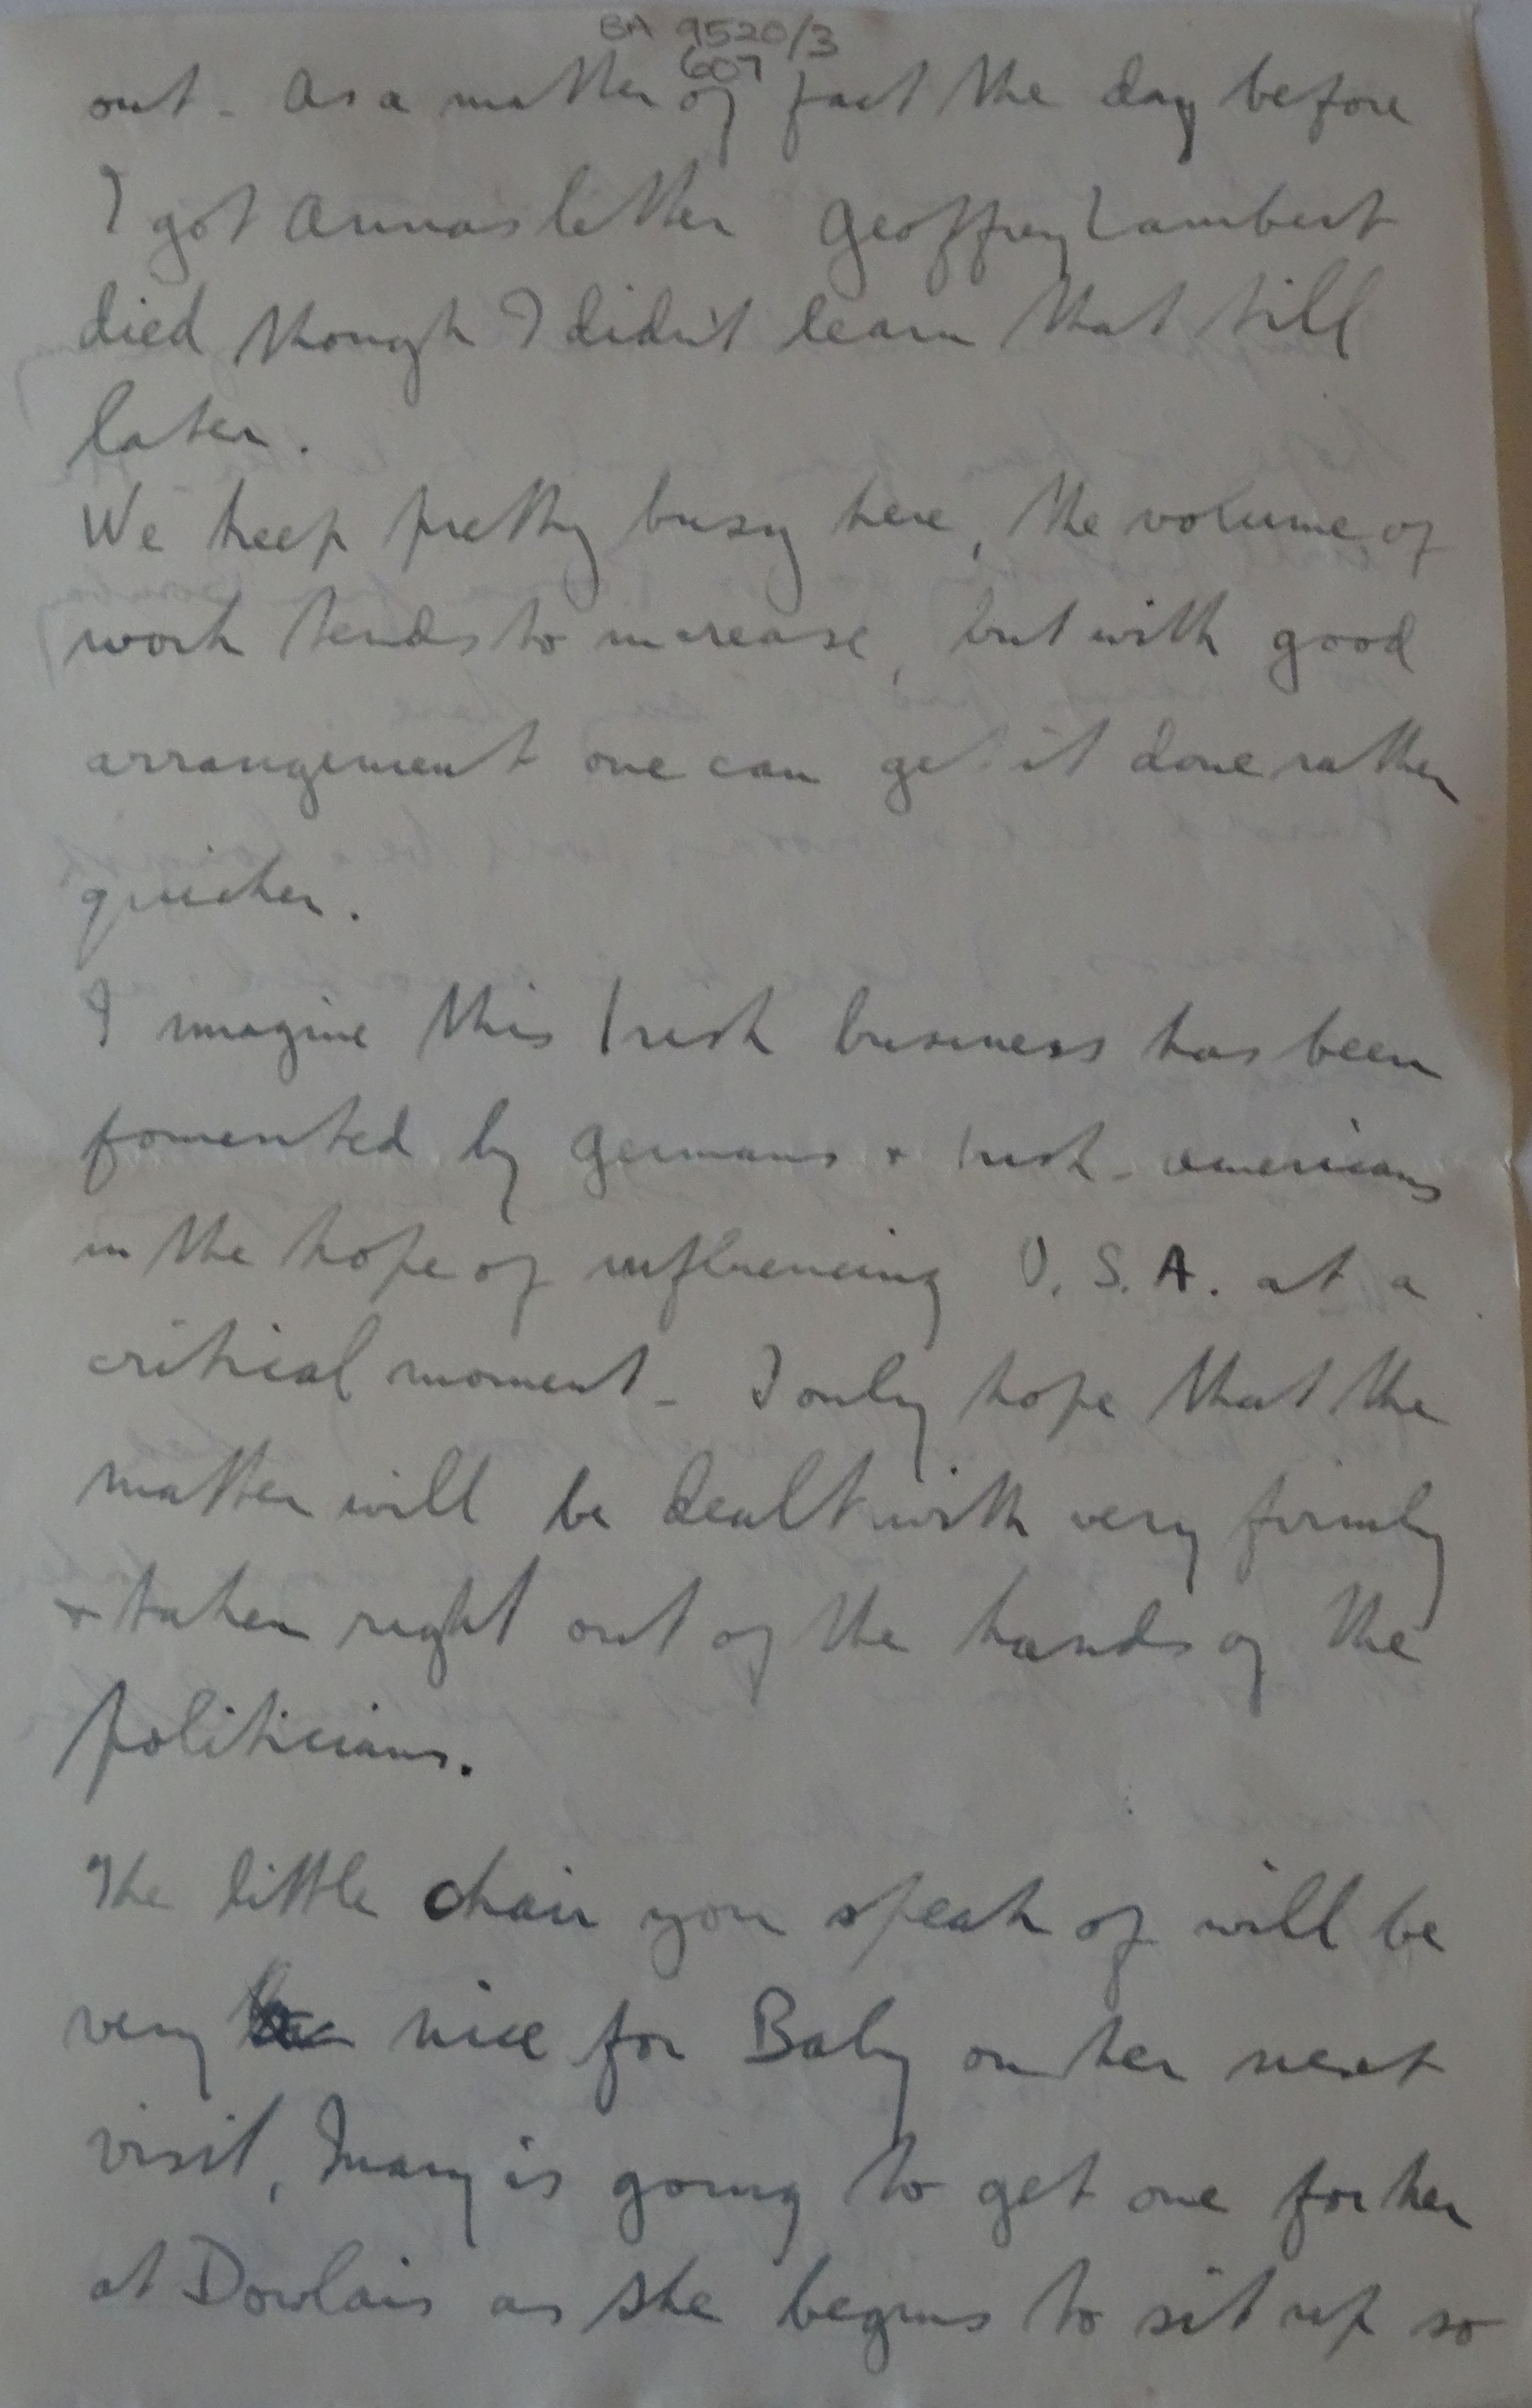 BA 9520/3
607
out - As a matter of fact the day before
I got Annas letter Geoffrey Lambert
died though I didn't learn that till
later.
We keep pretty busy here, the volume of
work tends to increase, but with good
arrangement one can get it done rather
quicker.
I imagine this Irish business has been
fomented by Germans + Irish-Americans
in the hope of influencing U.S.A. at a
critical moment - I only hope that the
matter will be dealt with very firmly
+ taken right out of the hands of the
politicians.
The little chair you speak of will be
very nice for Baby on her next
visit, Mary is going to get one for her
at Dowlais as she begins to sit up so